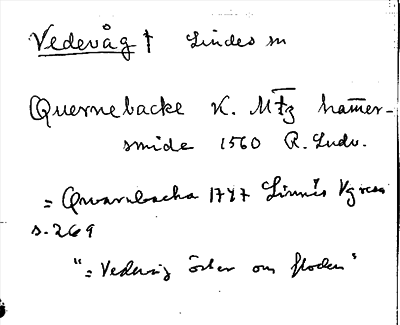 Vedevåg † Lindes sn
Quernebacke K. Mtz hamer-
smide 1560 R. Ludv.
= Qvarnbacka 1747 Linnés Vg resa
s. 269
"= Vedevåg öster om floden"